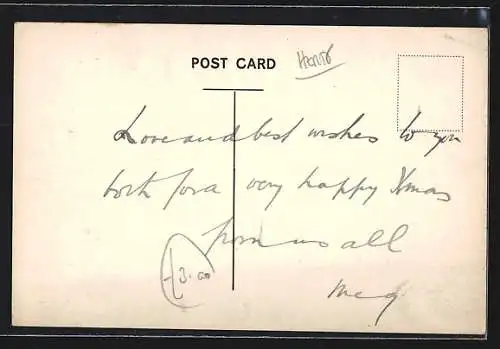 POST CARD
Love and best wishes to you
both for a very happy Xmas
from us all
Meg
£3.00